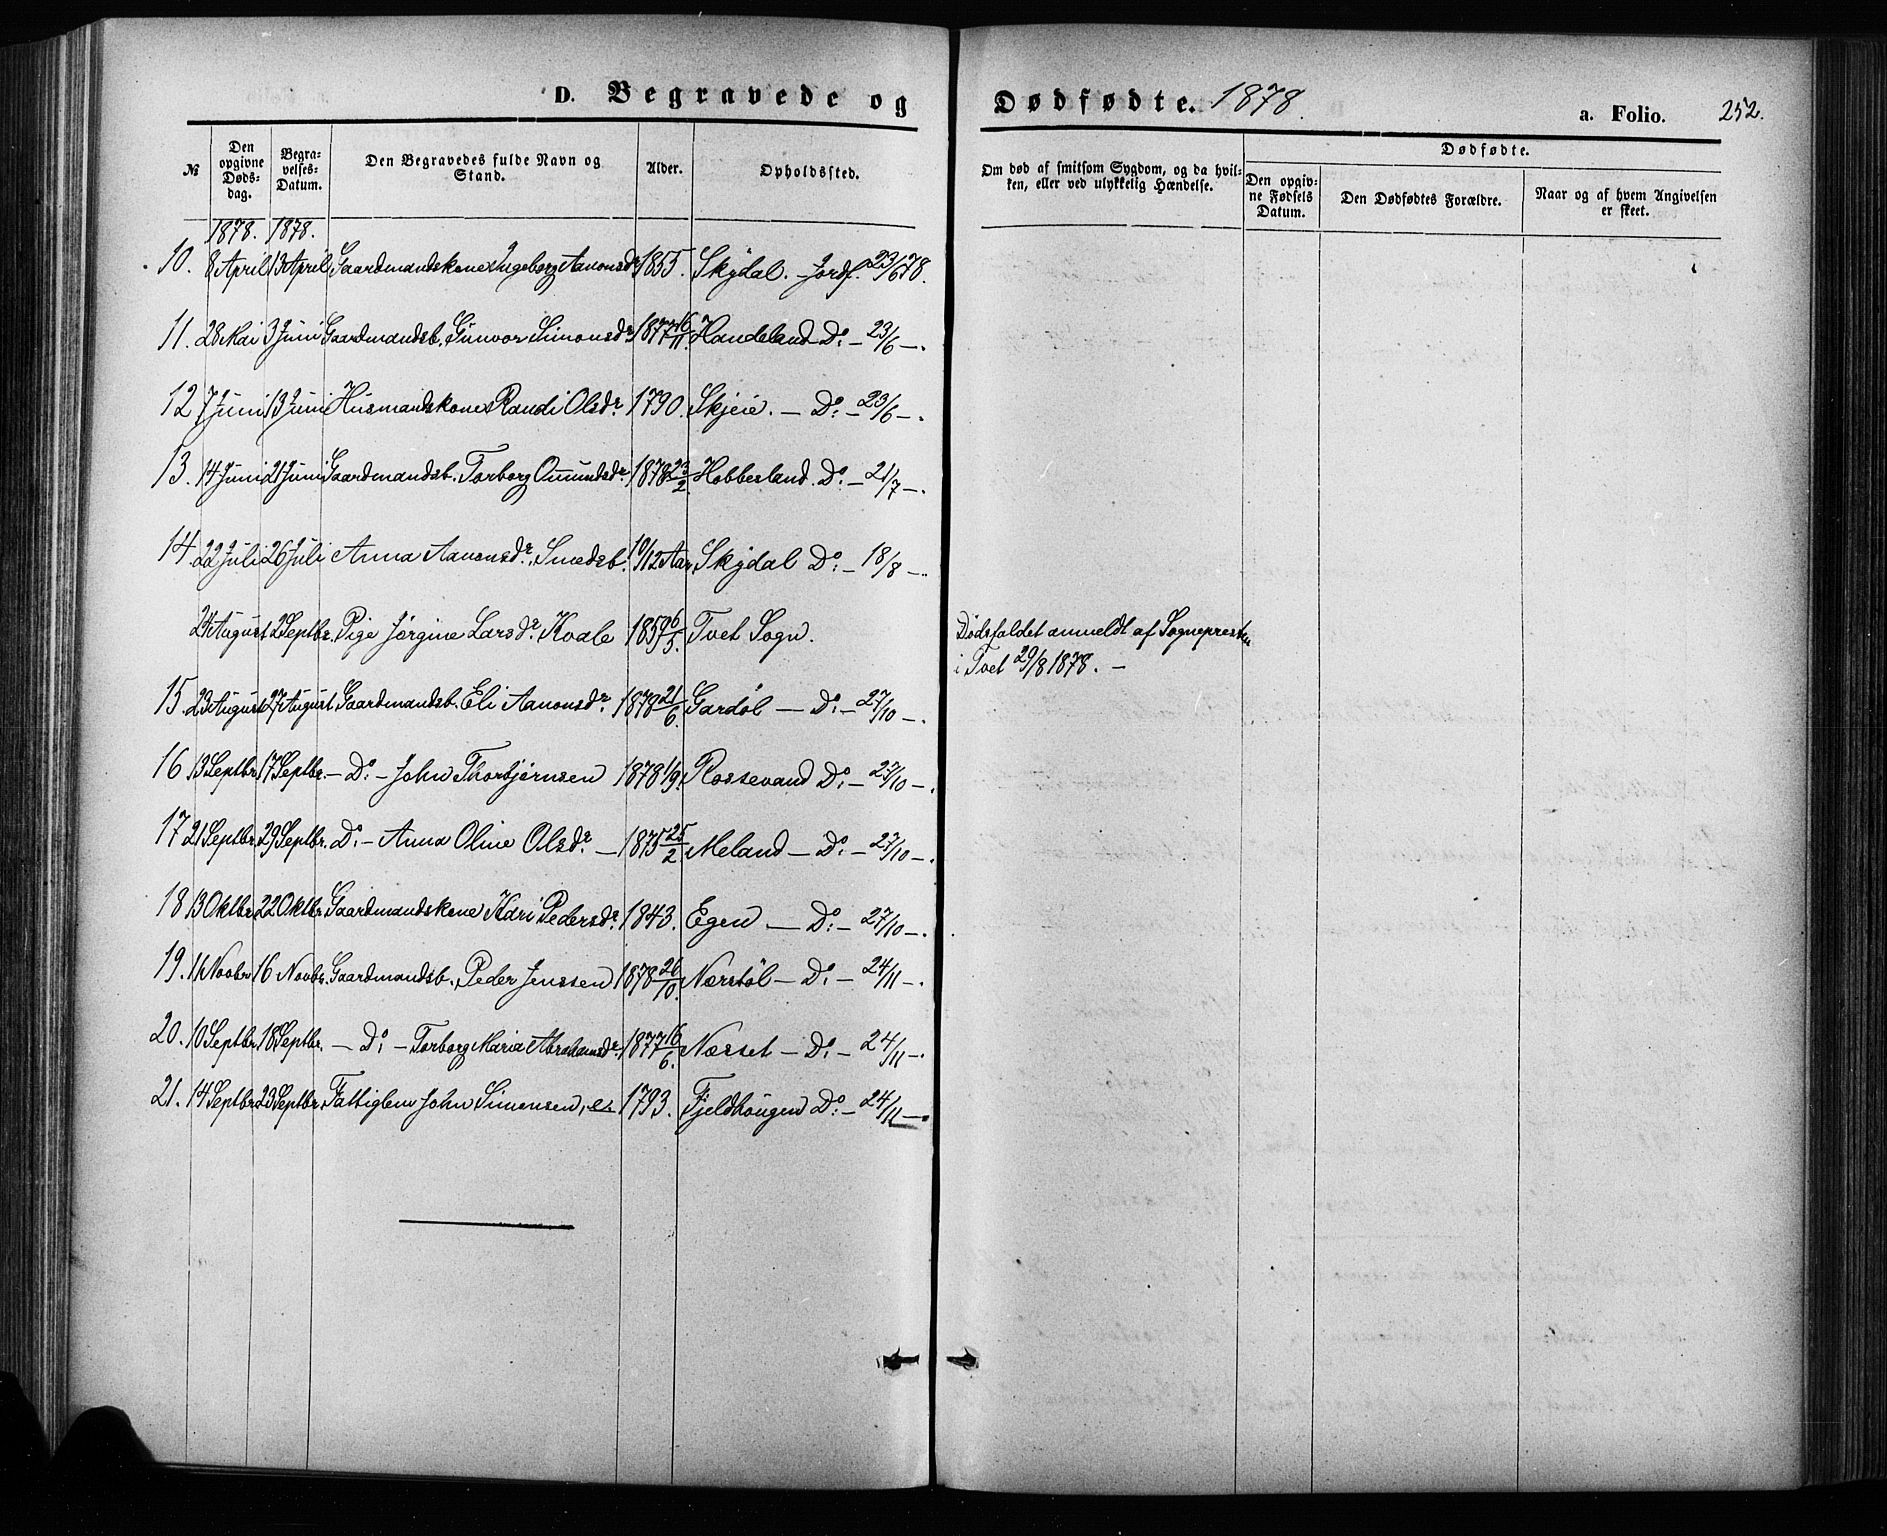 D. Begravede og Dødfødte. 1878. a. Folio. 252.
№ | Den opgivne Døds-dag. | Begra-velses-Datum. | Den Begravedes fulde Navn og Stand. | Alder. | Opholdssted. | Om død af smitsom Sygdom, og da hvil-ken, eller ved ulykkelig Hændelse. | Dødfødte. | Den opgiv-ne Fødsels Datum. | Den Dødfødtes Forældre. | Naar og af hvem Angivelsen er skeet.
1878. 1878.
10. 8 April 13 April Gaardmandskone Ingeborg Aanonsdr 1855. Skjdal. Jordf. 23/6 78.
11. 28 Mai 3 Juni Gaardmandsb. Gunvor Simonsdr 1877 16/11. Handeland Do: – 23/6 –.
12 7 Juni 13 Juni Husmandskone Randi Olsdr. 1790. Skjeie. – Do: – 23/6 –.
13. 14 Juni 21 Juni Gaardmandsb. Torborg Omundsdr. 1878 23/2. Hobbesland. Do: – 21/7 –.
14 22 Juli 26 Juli Anna Aanonsdr. Smedsb. 10/12 Aar Skjdal Do: – 18/8 –.
24 August 2 Septbr. Pige Jørgine Larsdr. Kvale 1859 6/5. Tvet Sogn. Dødsfaldet anmeldt af Sognepresten
i Tvet 29/8 1878. –
15. 23 August 27 August Gaardmandsb. Eli Aanonsdr. 1878 21/6. Gardøl – Do: – 27/10 –.
16 13 Septbr 17 Septbr. – Do: – John Thorbjørnsen 1878 1/9. Rossevand Do: – 27/10 –.
17 21 Septbr. 29 Septbr. Do: – Anna Oline Olsdr. – 1875 25/2 Meland – Do: – 27/10 –.
18 13 Oktbr. 22 Oktbr. Gaardmandskone Kari Pedersdr. 1843. Egen – Do: – 27/10 –.
19. 11 Novbr 16 Novbr. Gaardmandsb. Peder Jenssen 1878 26/10. Nærstøl – Do: – 24/11 –.
20. 10 Septbr. 18 Septbr. – Do: – Torborg Maria Abrahamsdr. 1877 16/6. Nesset – Do: – 24/11 –.
21. 14 Septbr 23 Septbr. Fattiglem John Simonsen, 1793. Fjeldhougen Do: – 24/11 –.